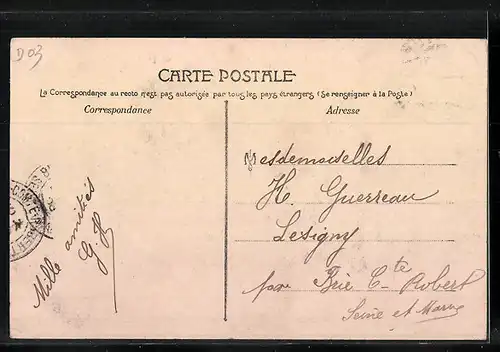 D 03
CARTE POSTALE
La Correspondance au recto n'est pas autorisée par tous les pays étrangers (Se renseigner à la Poste)
Correspondance
Adresse
Mille amitiés
G H
Mesdemoiselles
H. Guerreau
Lesigny
par Brie Cte Robert
Seine et Marne